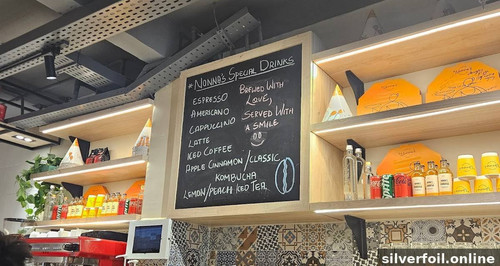 #Nonna's Special Drinks
Espresso
Americano
Cappuccino
Latte
Iced Coffee
Apple Cinnamon/Classic
Kombucha
Lemon/Peach Iced Tea
Brewed With
Love,
Served With
A Smile
silverfoil.online